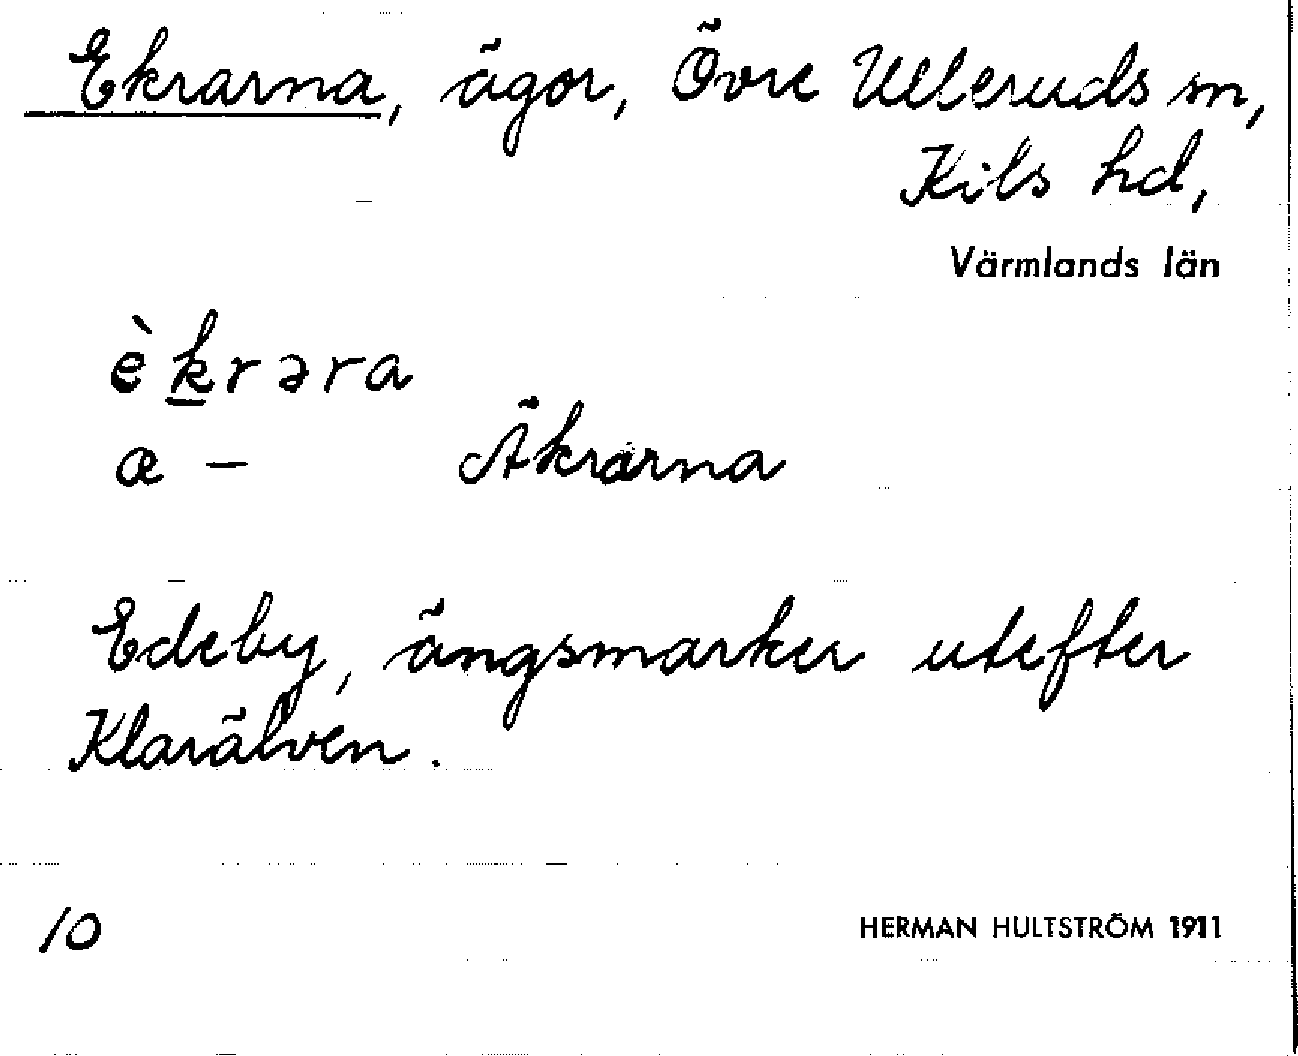 Ekrarna, ägor, Övre Ulleruds sn,
Kils hd,
Värmlands län
èkrəra
æ – Äkrarna
Edeby, ängsmarker utefter
Klarälven.
10
HERMAN HULTSTRÖM 1911